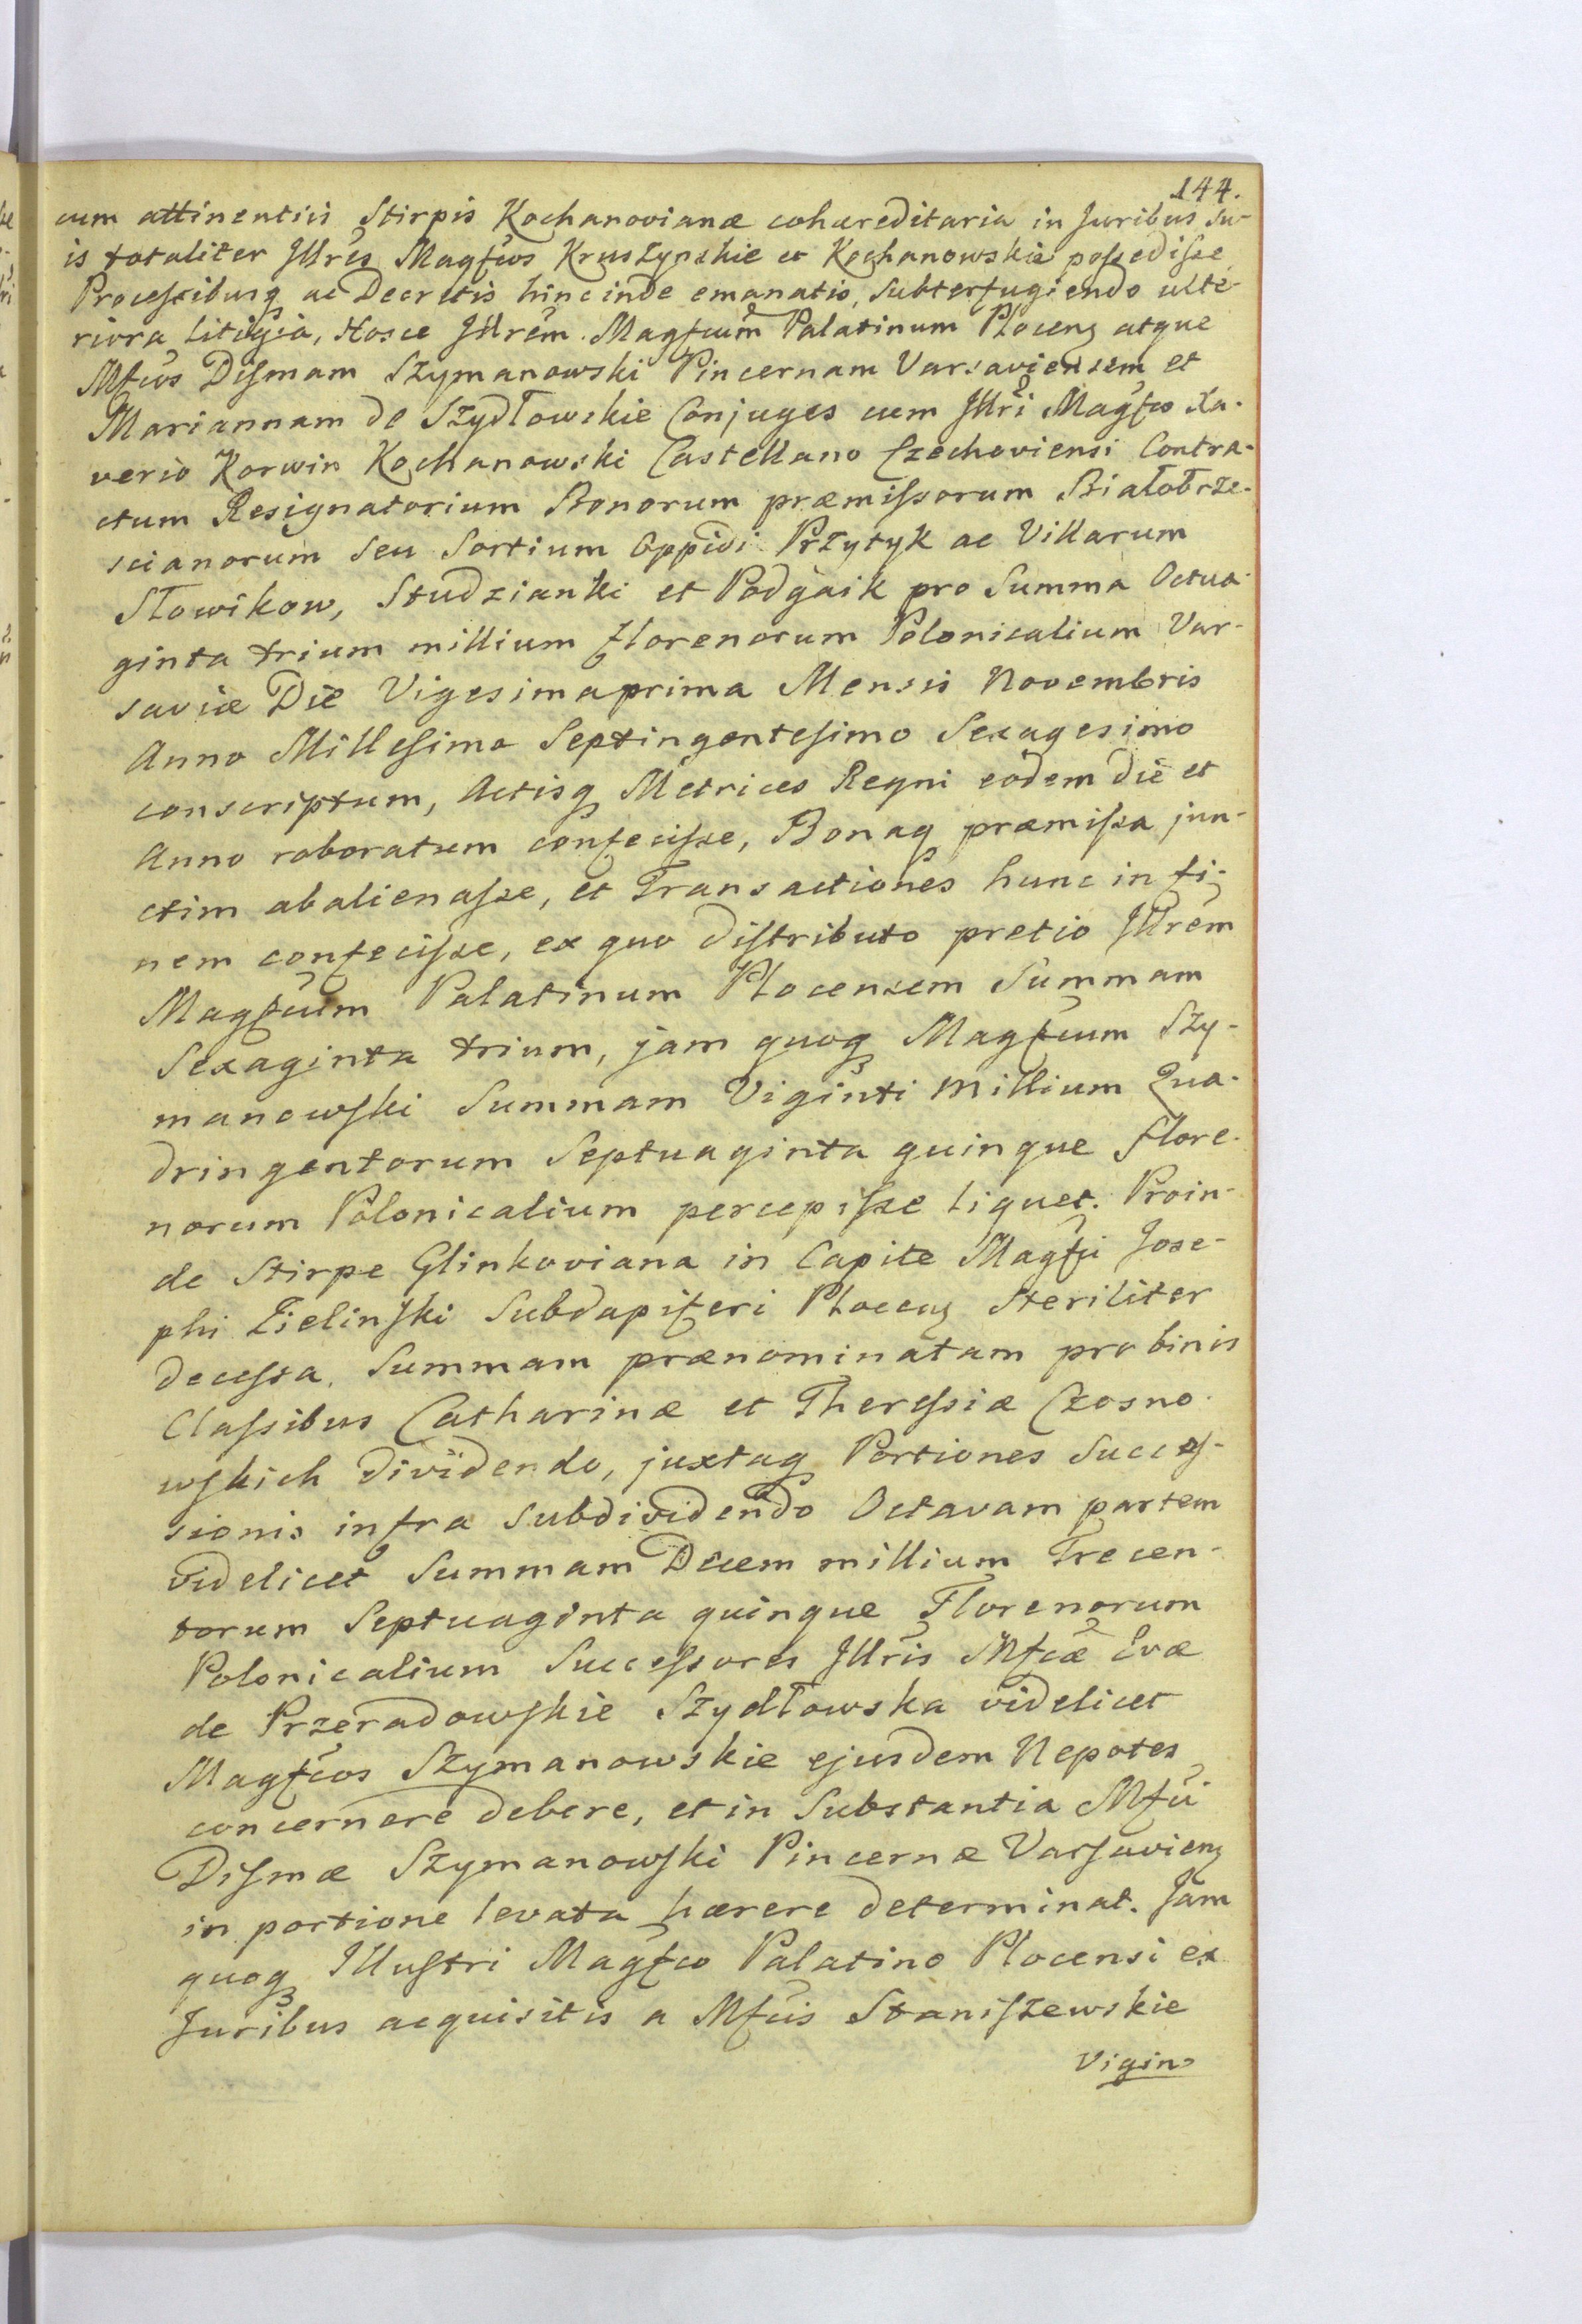 144.
cum attinentiis Stirpis Kochanovianæ cohæreditaria in Juribus Su-
is totaliter Jllres Magfcos Kruszynskie et Kochanowskie poſsediſse
Proceſsibusq ac Decretis hinc inde emanatis, Subterfugiendo ulte-
riora Litigia, Hosce Jllrem Magfcum Palatinum Plocens atque
Mfcos Diſmam Szymanowski Pincernam Varsaviensem et
Mariannam de Szydłowskie Conjuges cum Jllri Magfco Xa-
verio Korwin Kochanowski Castellano Czechoviensi Contra-
ctum Resignatorium Bonorum præmiſsorum Białobrze-
scianorum Seu Sortium Oppidi Przytyk ac Villarum
Słowikow, Studzianki et Podgaik pro Summa Octua-
ginta trium millium florenorum Polonicalium Var-
saviæ Die Vigesimaprima Mensis Novembris
Anno Milleſimo Septingenteſimo Sexagesimo
conscriptum, Actisq Metrices Regni eodem die et
Anno roboratum confeciſse, Bonaq præmiſsa jun-
ctim abalienaſse, et Transactiones hunc in fi-
nem confeciſse, ex quo diſtributo pretio Jllrem
Magfcum Palatinum Plocensem Summam
Sexaginta trium, jam quoq Magfcum Szy-
manowſki Summam Viginti millium Qua-
dringentorum Septuaginta quinque flore-
norum Polonicalium percepiſse liquet. Proin-
de Stirpe Glinkoviana in Capite Magfci Jose-
phi Zielinſki Subdapiferi Plocens Steriliter
deceſsa, Summam prænominatam pro binis
Claſsibus Catharinæ et Thereſsiæ Czosno-
wſkich dividendo, juxtaq Portiones Succeſ-
sionis infra Subdividendo Octavam partem
videlicet Summam Decem millium Trecen-
torum Septuaginta quinque Florenorum
Polonicalium Succeſsores Jllris Mfcæ Evæ
de Przeradowſkie Szydłowska videlicet
Magfcos Szymanowskie ejusdem Nepotes
concernere debere, et in Substantia Mfci
Diſmæ Szymanowſki Pincernæ Varſaviens
in portione levata hærere determinat. Jam
quoq Jlluſtri Magfco Palatino Plocensi ex
Juribus acquisitis a Mfcis Staniſzewskie
Vigin-